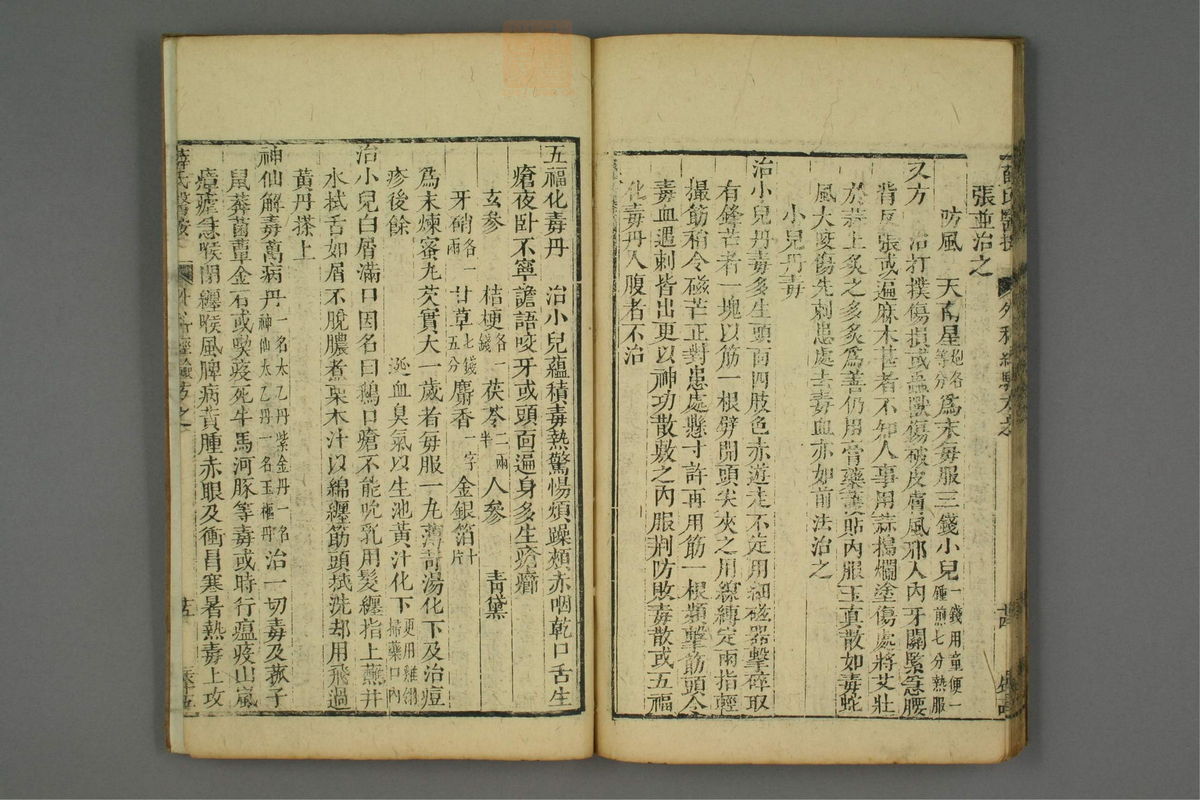 薛氏醫按
外科經驗方
張並治之
防風 天南星炮各等分為末每服三錢小兒一錢用童便一鍾煎七分熱服
又方 治打撲傷損或蟲獸傷破皮膚風邪入內牙關緊急腰
背反張或遍麻木甚者不知人事用蒜搗爛塗傷處將艾壯
於蒜上炙之多炙為善仍用膏藥護貼內服玉真散如毒蛇
風犬咬傷先刺患處去毒血亦如前法治之
小兒丹毒
治小兒丹毒多生頭面四肢色赤遊走不定用細磁器擊碎取
有鋒芒者一塊以筋一根劈開頭尖夾之用線縛定兩指輕
撮筋稍令磁芒正對患處懸寸許再用筋一根頻擊筋頭令
毒血遇刺皆出更以神功散敷之內服荆防敗毒散或五福
化毒丹入腹者不治
五福化毒丹 治小兒蘊積毒熱驚惕煩躁頰赤咽乾口舌生
瘡夜卧不寧譫語咬牙或頭面遍身多生瘡癤
玄參 桔梗各一錢 茯苓二兩半 人參 青黛
牙硝各一兩 甘草七錢五分 麝香一字 金銀箔十片
為末煉蜜丸芡實大一歲者每服一丸薄荷湯化下及治痘
疹後餘 涎血臭氣以生地黃汁化下更用雞翎掃藥口內
治小兒白屑滿口因名曰鵝口瘡不能吮乳用髮纏指上蘸井
水拭舌如屑不脫膿煮栗木汁以綿纏筋頭拭洗却用飛過
黃丹搽上
神仙解毒萬病丹一名太乙丹紫金丹一名神仙太乙丹一名玉樞丹 治一切毒及菰子
鼠莽菌蕈金石或喫疫死牛馬河豚等毒或時行瘟疫山嵐
瘴瘧急喉閉纏喉風脾病黃腫赤眼及衝昌寒暑熱毒上攻
薛氏醫按 外科經驗方 五